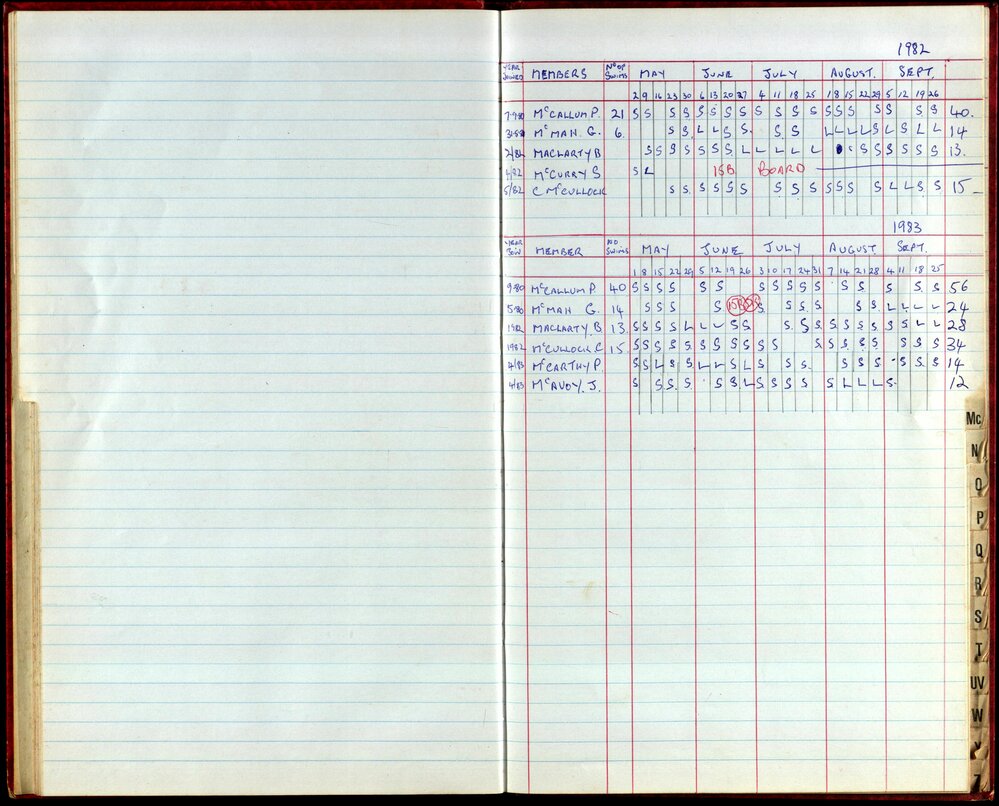 1982
YEAR JOINED MEMBERS Nº OF SWIMS MAY JUNE JULY AUGUST. SEPT.
2 9 16 23 30 6 13 20 27 4 11 18 25 1 8 15 22 29 5 12 19 26
7-9-80 McCALLUM P. 21 S S S S S S S S S S S S S S S S S S S 40.
McMAH. G. 6. S S L L S S. S S L L L L S L S L L 14
2/82 MACLARTY B S S S S S S S L L L L L S S S S S S 13.
McCURRY S S L 15B BOARD
5/82 C McCULLOCK S S S S S S S S S S S S S L L S S 15
1983
YEAR JOIN MEMBER NO. SWIMS MAY JUNE JULY AUGUST. SEPT.
1 8 15 22 29 5 12 19 26 3 10 17 24 31 7 14 21 28 4 11 18 25
9-80 McCALLUM P. 40 S S S S S S S S S S S S S S S S 56
5-80 McMAH G. 14 S S S S 15B S S S S S S L L L L 24
1982 MACLARTY B 13. S S S S L L L S S S S S S S S S S S L L 28
1982 McCULLOCK C 15. S S S S S S S S S S S S S S S S S S 34
4/83 McCARTHY P. S S L S S L L S L S S S S S S S S S 14
4/83 McAVOY. J. S S S S S S L S S S S S L L L S. 12
Mc
N
O
P
Q
R
S
T
UV
W
Y
Z